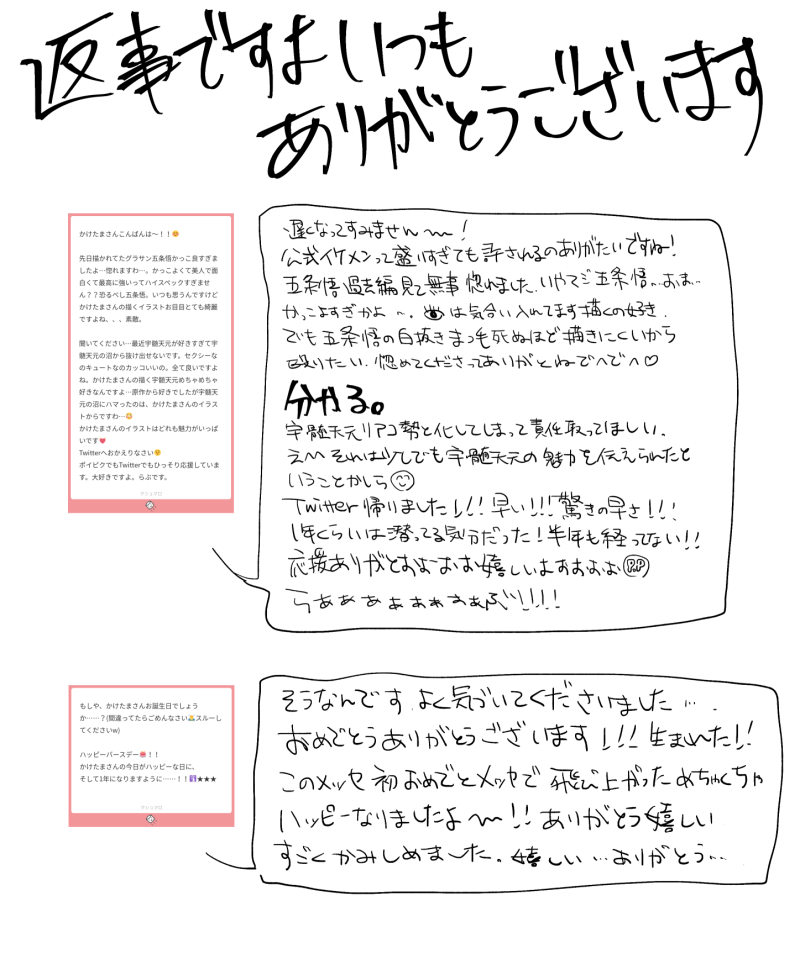 返事ですよいつも
ありがとうございます
かけたまさんこんばんは〜！！😊
先日描かれてたグラサン五条悟かっこ良すぎ
ましたよ…惚れますわ…。かっこよくて美人で面
白くて最高に強いってハイスペックすぎませ
ん？？恐るべし五条悟。いつも思うんですけど
かけたまさんの描くイラストお目目とても綺麗
ですよね、、、素敵。
聞いてください…最近宇髄天元が好きすぎて宇
髄天元の沼から抜け出せないです。セクシーな
のキュートなのカッコいいの。全て良いですよ
ね。かけたまさんの描く宇髄天元めちゃめちゃ
好きなんですよ…原作から好きでしたが宇髄天
元の沼にハマったのは、かけたまさんのイラス
トからですわ…😳
かけたまさんのイラストはどれも魅力がいっぱ
いです❤️
Twitterへおかえりなさい😉
ポイピクでもTwitterでもひっそり応援していま
す。大好きですよ。らぶです。
マシュマロ
遅くなってすみません〜〜！
公式イケメンって盛りすぎても許されるのありがたいですね！
五条悟過去編見て無事惚れました.いやマジ五条悟...おま...
かっこよすぎかよ〜. は気合い入れてます描くの好き.
でも五条悟の白抜きまつ毛死ぬほど描きにくいから
殴りたい. 惚めてくださってありがとねでへでへ♡
分かる。
宇髄天元リアコ勢と化してしまって責任取ってほしい.
え〜〜それは少しでも宇髄天元の魅力を伝えられたと
いうことかしら☺
Twitter帰りました！！！早い！！！驚きの早さ！！！
1年くらいは潜ってる気分だった！半年も経ってない！！
応援ありがとおよおおお嬉しいよおおおよお
らぁぁぁぁぁぁぁぁぶ！！！！
もしや、かけたまさんお誕生日でしょう
か……？(間違ってたらごめんなさい🙇スルーし
てくださいw)
ハッピーバースデー㊗️！！
かけたまさんの今日がハッピーな日に、
そして1年になりますように……！！🛐★★★
マシュマロ
そうなんです.よく気づいてくださいました....
おめでとうありがとうございます！！！生まれた！！
このメッセ初おめでとメッセで飛び上がっためちゃくちゃ
ハッピーなりましたよ〜〜！！ありがとう嬉しい
すごくかみしめました. 嬉しい...ありがとう...